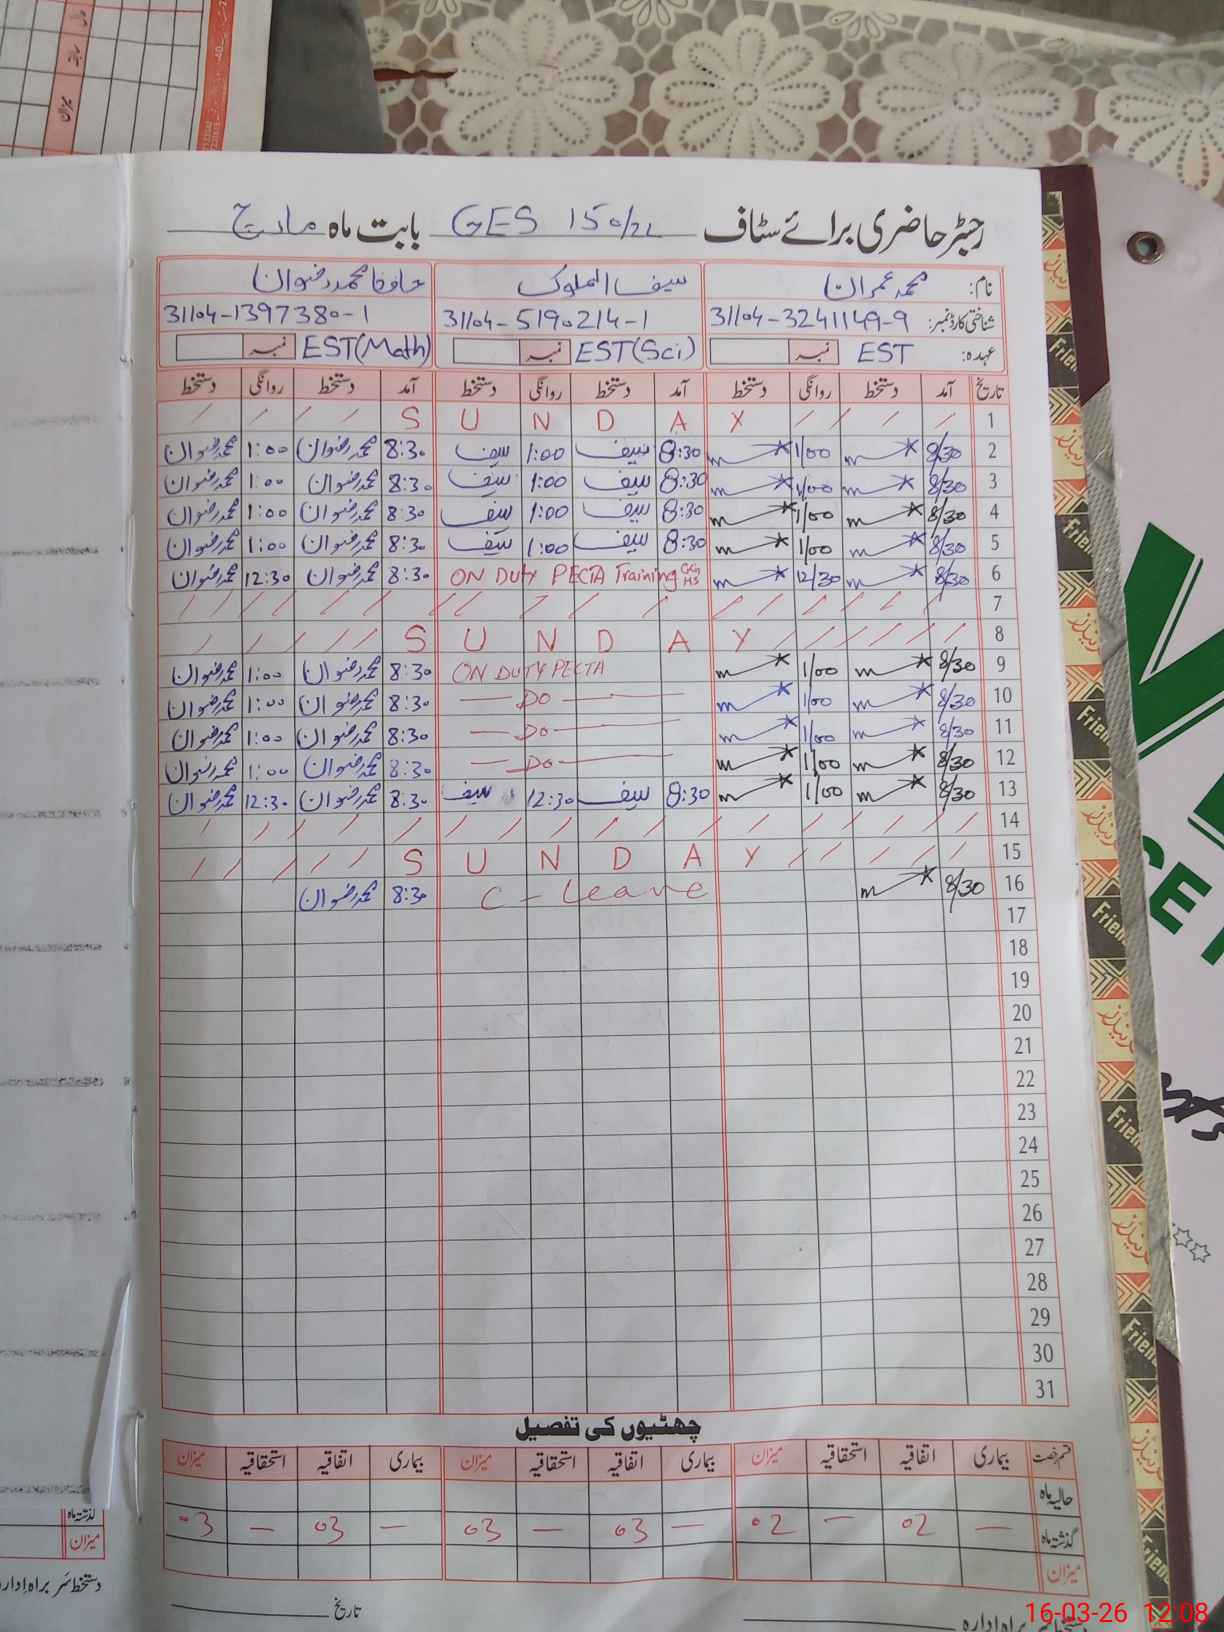 رجسٹر حاضری برائے سٹاف GES 150/2L بابت ماہ مارچ
نام: محمد عمران سیف الملوک حافظ محمد رضوان
شناختی کارڈ نمبر: 31104-3241149-9 31104-5190214-1 31104-1397380-1
عہدہ: EST نمبر EST(Sci) نمبر EST(Math) نمبر
تاریخ آمد دستخط روانگی دستخط آمد دستخط روانگی دستخط آمد دستخط روانگی دستخط
1 S U N D A Y
2 8/30 1/00 8:30 سیف 1:00 سیف 8:30 محمد رضوان 1:00 محمد رضوان
3 8/30 1/00 8:30 سیف 1:00 سیف 8:30 محمد رضوان 1:00 محمد رضوان
4 8/30 1/00 8:30 سیف 1:00 سیف 8:30 محمد رضوان 1:00 محمد رضوان
5 8/30 1/00 8:30 سیف 1:00 سیف 8:30 محمد رضوان 1:00 محمد رضوان
6 8/30 12/30 ON DUTY PECTA Training 8:30 محمد رضوان 12:30 محمد رضوان
7
8 S U N D A Y
9 8/30 1/00 ON DUTY PECTA 8:30 محمد رضوان 1:00 محمد رضوان
10 8/30 1/00 — Do — 8:30 محمد رضوان 1:00 محمد رضوان
11 8/30 1/00 — Do — 8:30 محمد رضوان 1:00 محمد رضوان
12 8/30 1/00 — Do — 8:30 محمد رضوان 1:00 محمد رضوان
13 8/30 1/00 8:30 سیف 12:30 سیف 8:30 محمد رضوان 12:30 محمد رضوان
14
15 S U N D A Y
16 8/30 C - Leave 8:30 محمد رضوان
17
18
19
20
21
22
23
24
25
26
27
28
29
30
31
چھٹیوں کی تفصیل
قسم رخصت بیماری اتفاقیہ استحقاقیہ میزان بیماری اتفاقیہ استحقاقیہ میزان بیماری اتفاقیہ استحقاقیہ میزان
حالیہ ماہ
گذشتہ ماہ — 02 — 02 — 03 — 03 — 03 — 03
میزان
تاریخ
گذشتہ ماہ
میزان
دستخط سربراہ ادارہ
16-03-26 12:08
Friends